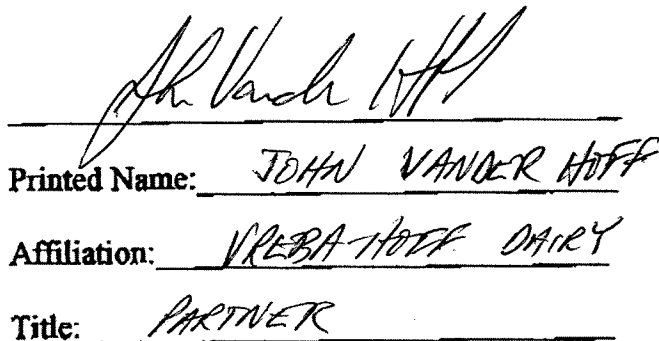 John Vander Hoff
Printed Name: JOHN VANDER HOFF
Affiliation: VREBA-HOFF DAIRY
Title: PARTNER